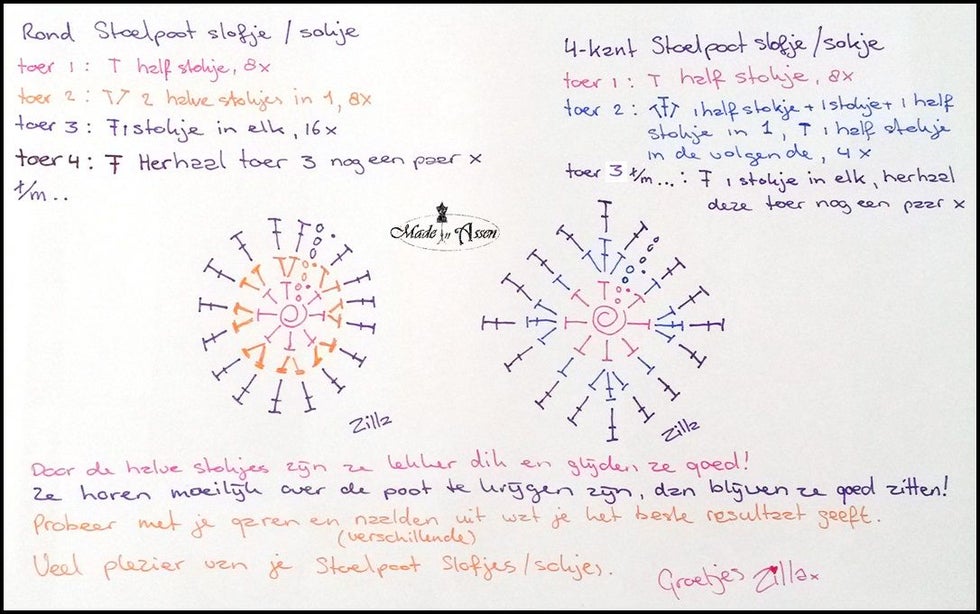 Rond Stoelpoot slofje / sokje
toer 1 : T half stokje, 8x
toer 2 : 2 halve stokjes in 1, 8x
toer 3 : 1 stokje in elk, 16x
toer 4 : Herhaal toer 3 nog een paar x
t/m...
4-kant Stoelpoot slofje / sokje
toer 1 : T half stokje, 8x
toer 2 : 1 half stokje + 1 stokje + 1 half
stokje in 1, T 1 half stokje
in de volgende, 4x
toer 3 t/m... : 1 stokje in elk, herhaal
deze toer nog een paar x
Made in Assen
Zilla
Zilla
Door de halve stokjes zijn ze lekker dik en glijden ze goed!
Ze horen moeilijk over de poot te krijgen zijn, dan blijven ze goed zitten!
Probeer met je garen en naalden uit wat je het beste resultaat geeft.
(verschillende)
Veel plezier van je Stoelpoot Slofjes / sokjes.
Groetjes Zilla x